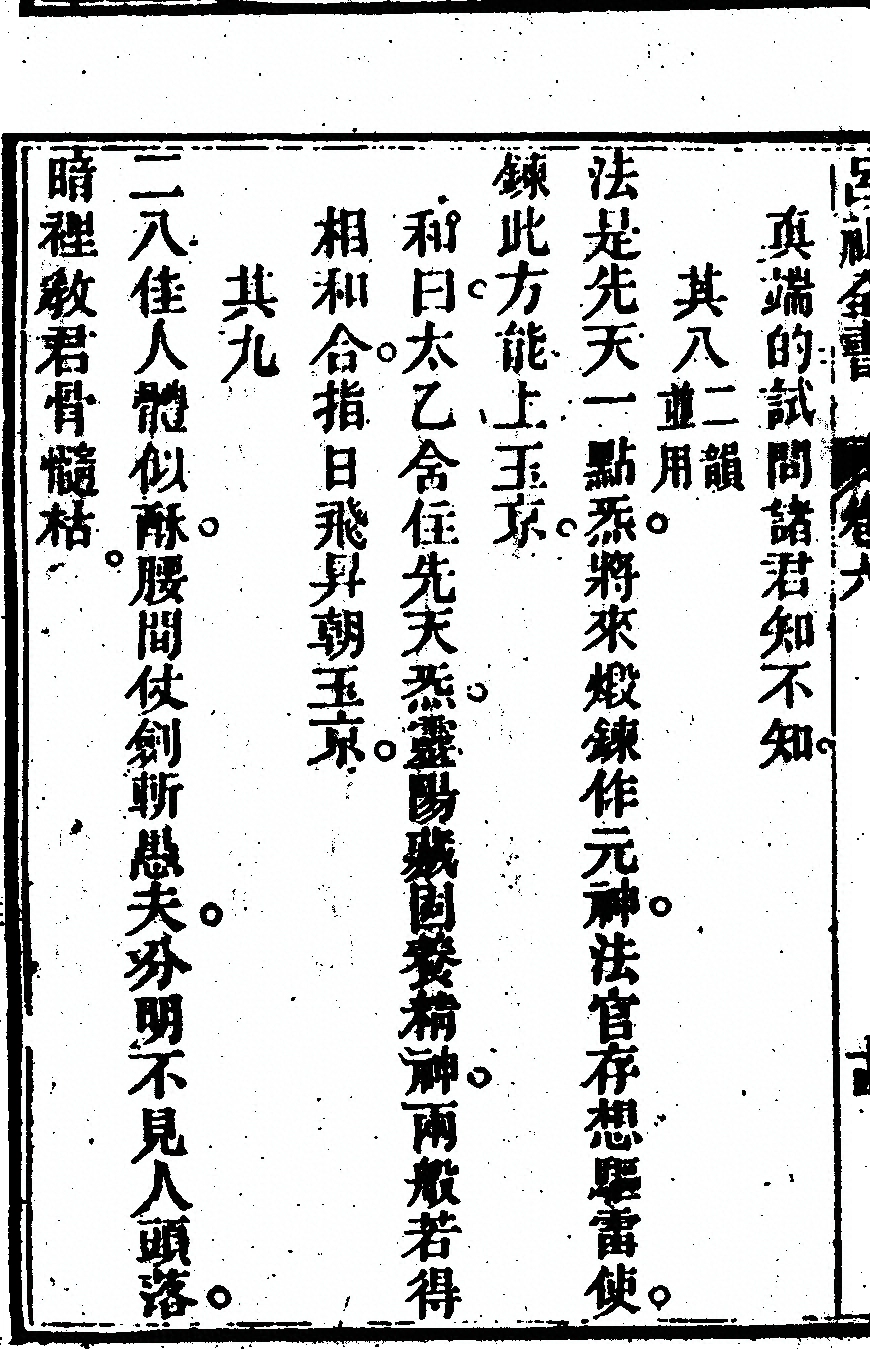 呂祖全書 卷六
真端的試問諸君知不知
其八 二韻並用
法是先天一點炁將來煅鍊作元神法官存想驅雷使
鍊此方能上玉京
和曰太乙含住先天炁靈陽藏固養精神兩般若得
相和合指日飛昇朝玉京
其九
二八佳人體似酥腰間仗劍斬愚夫分明不見人頭落
暗裡敎君骨髓枯